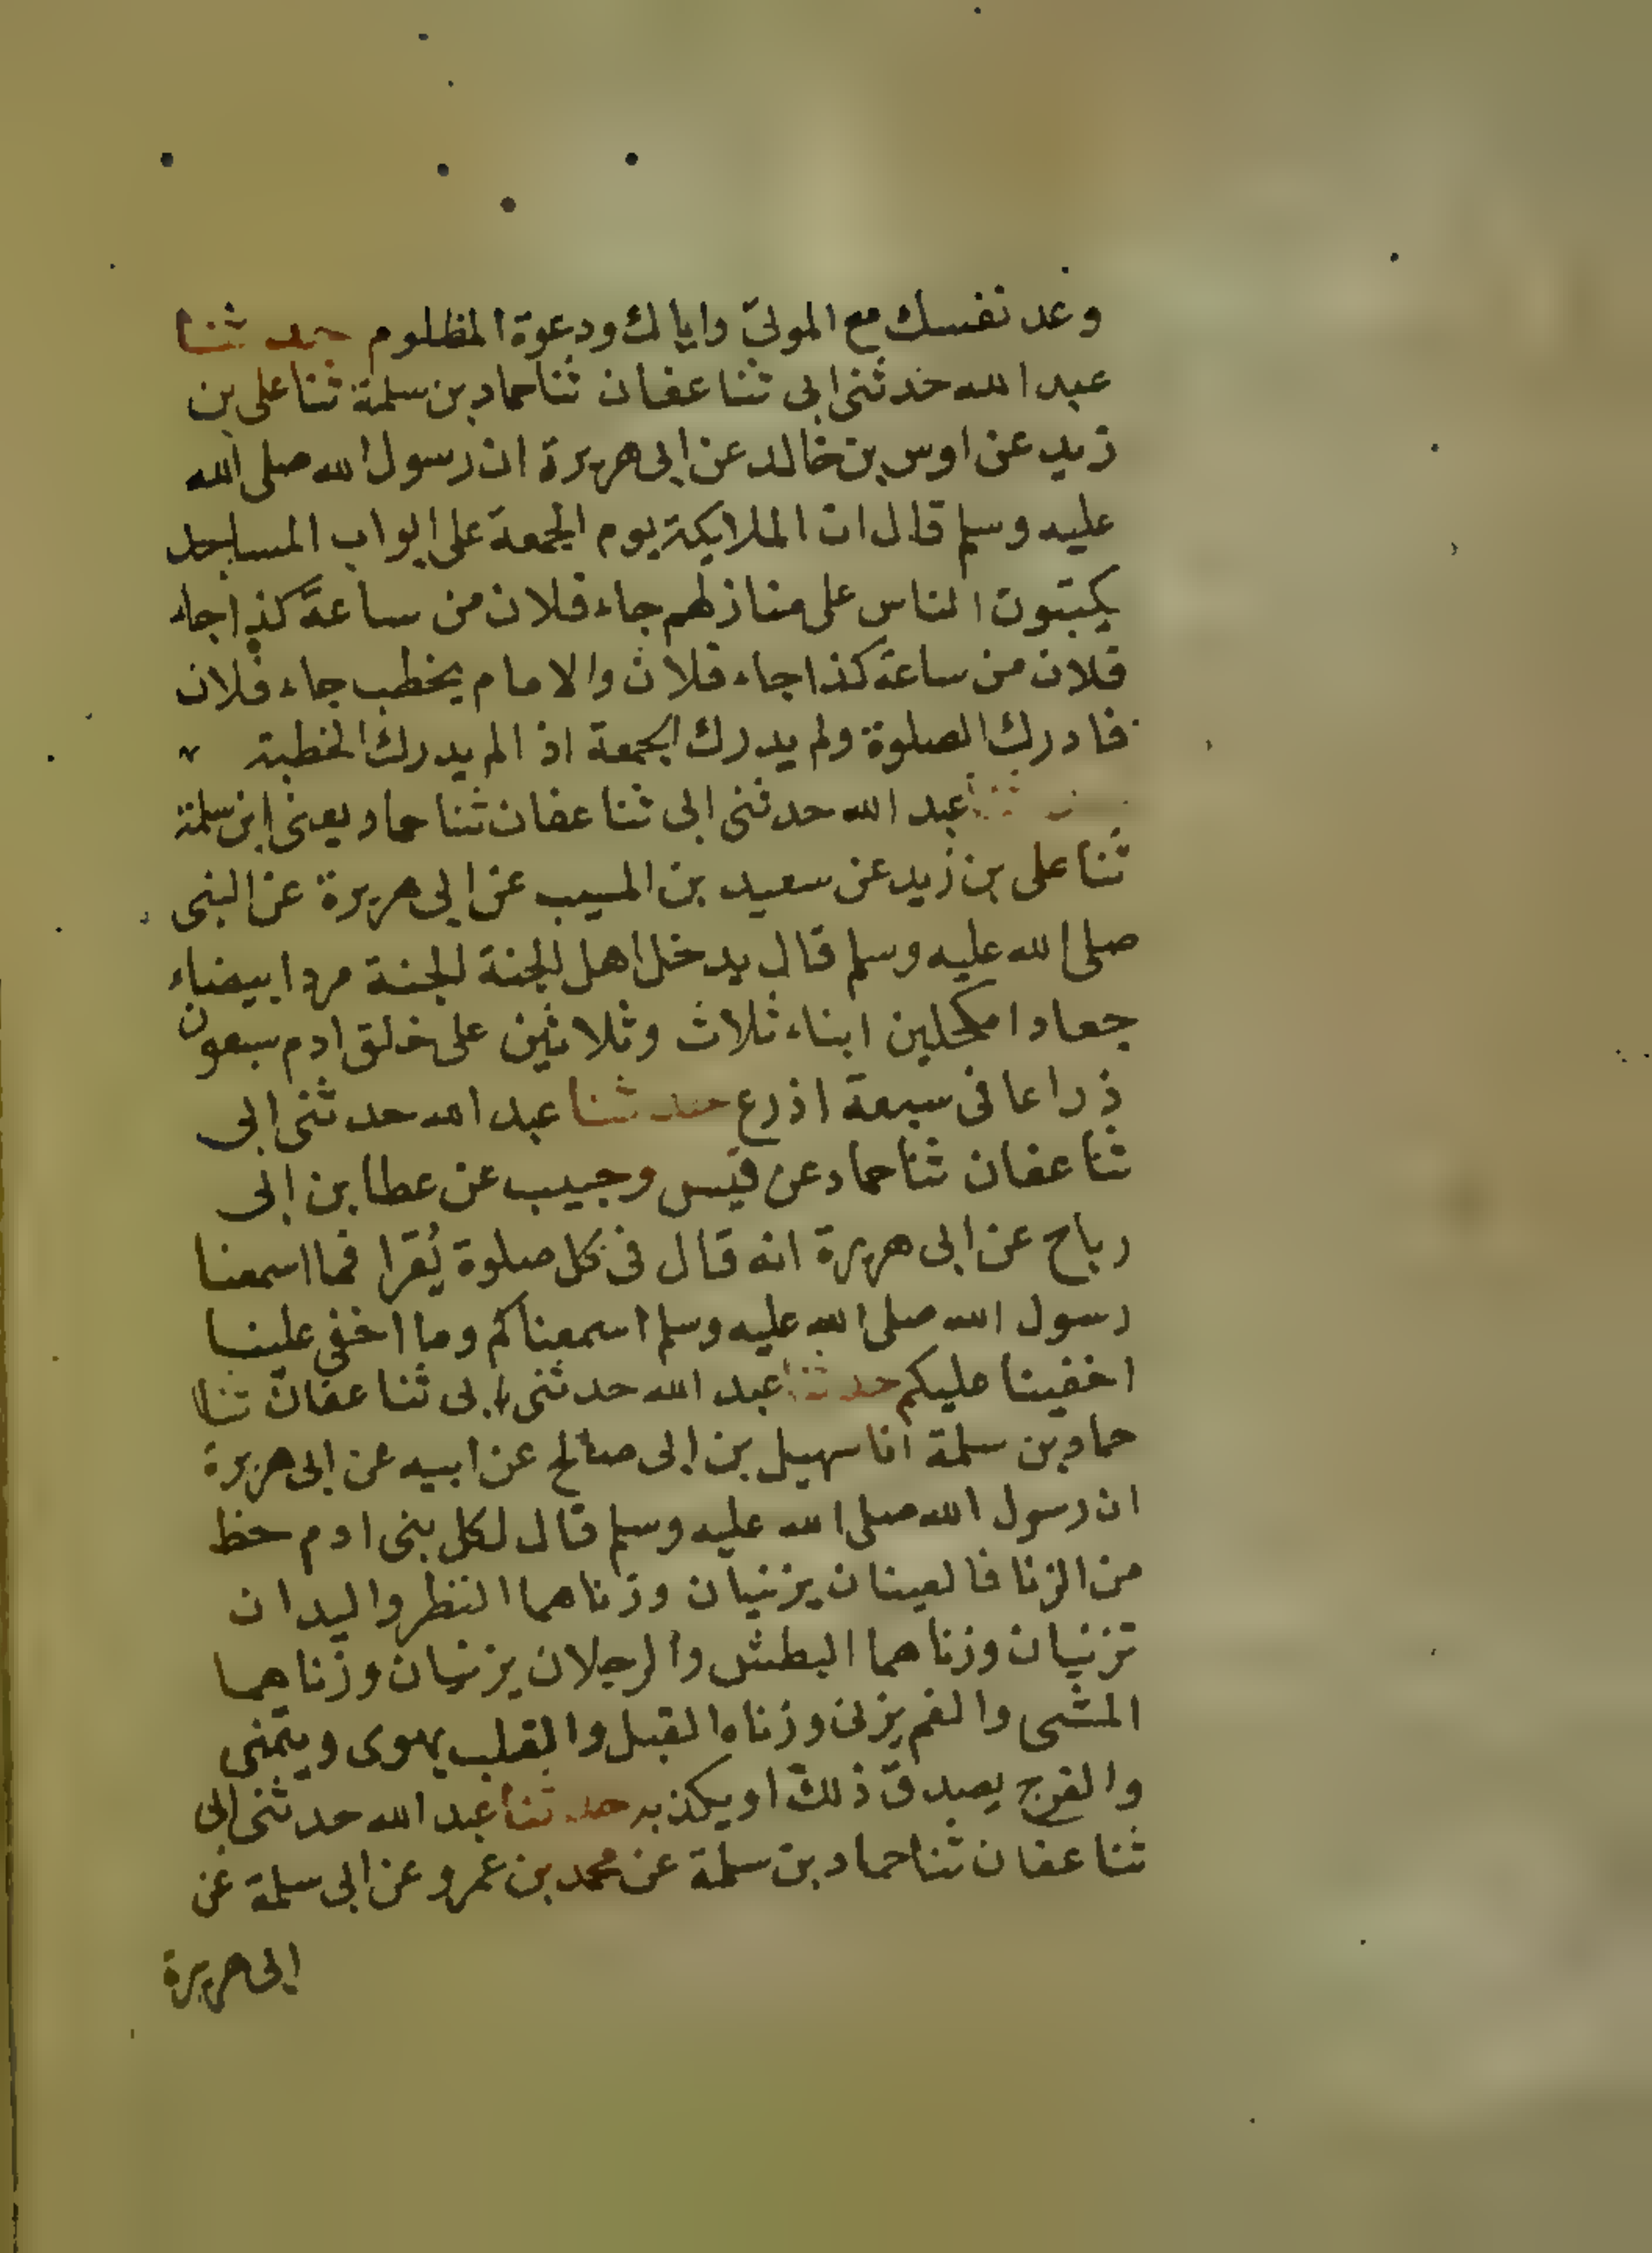 وعد نفسك مع الموتى واياك ودعوة المظلوم حدثنا
عبد الله حدثنى ابى ثنا عفان ثنا حماد بن سلمة ثنا على بن
زيد عن اوس بن خالد عن ابى هريرة ان رسول الله صلى الله
عليه وسلم قال ان الملايكة يوم الجمعة على ابواب المساجد
يكتبون الناس على منازلهم جاء فلان من ساعة كذا جاء
فلان من ساعة كذا جاء فلان والامام يخطب جاء فلان
فادرك الصلوة ولم يدرك الجمعة اذا لم يدرك الخطبة
حدثنا عبد الله حدثنى ابى ثنا عفان ثنا حماد يعنى ابن سلمة
ثنا على بن زيد عن سعيد بن المسيب عن ابى هريرة عن النبى
صلى الله عليه وسلم قال يدخل اهل الجنة الجنة مردا بيضاء
جعادا مكحلين ابناء ثلاث وثلاثين على خلق ادم سبعون
ذراعا فى سبعة اذرع حدثنا عبد الله حدثنى ابى
ثنا عفان ثنا حماد عن قيس وحبيب عن عطا بن ابى
رباح عن ابى هريرة انه قال فى كل صلوة يُقرا فما اسمعنا
رسول الله صلى الله عليه وسلم اسمعناكم وما اخفى علينا
اخفينا عليكم حدثنا عبد الله حدثنى ابى ثنا عفان ثنا
حماد بن سلمة انا سهيل بن ابى صالح عن ابيه عن ابى هريرة
ان رسول الله صلى الله عليه وسلم قال لكل بنى ادم حظ
من الزنا فالعينان يزنيان وزناهما النظر واليدان
تزنيان وزناهما البطش والرجلان يزنيان وزناهما
المشى والفم يزنى وزناه القبل والقلب يهوى ويتمنى
والفرج يصدق ذلك او يكذبه حدثنا عبد الله حدثنى ابى
ثنا عفان ثنا حماد بن سلمة عن محمد بن عمرو عن ابى سلمة عن
ابى هريرة